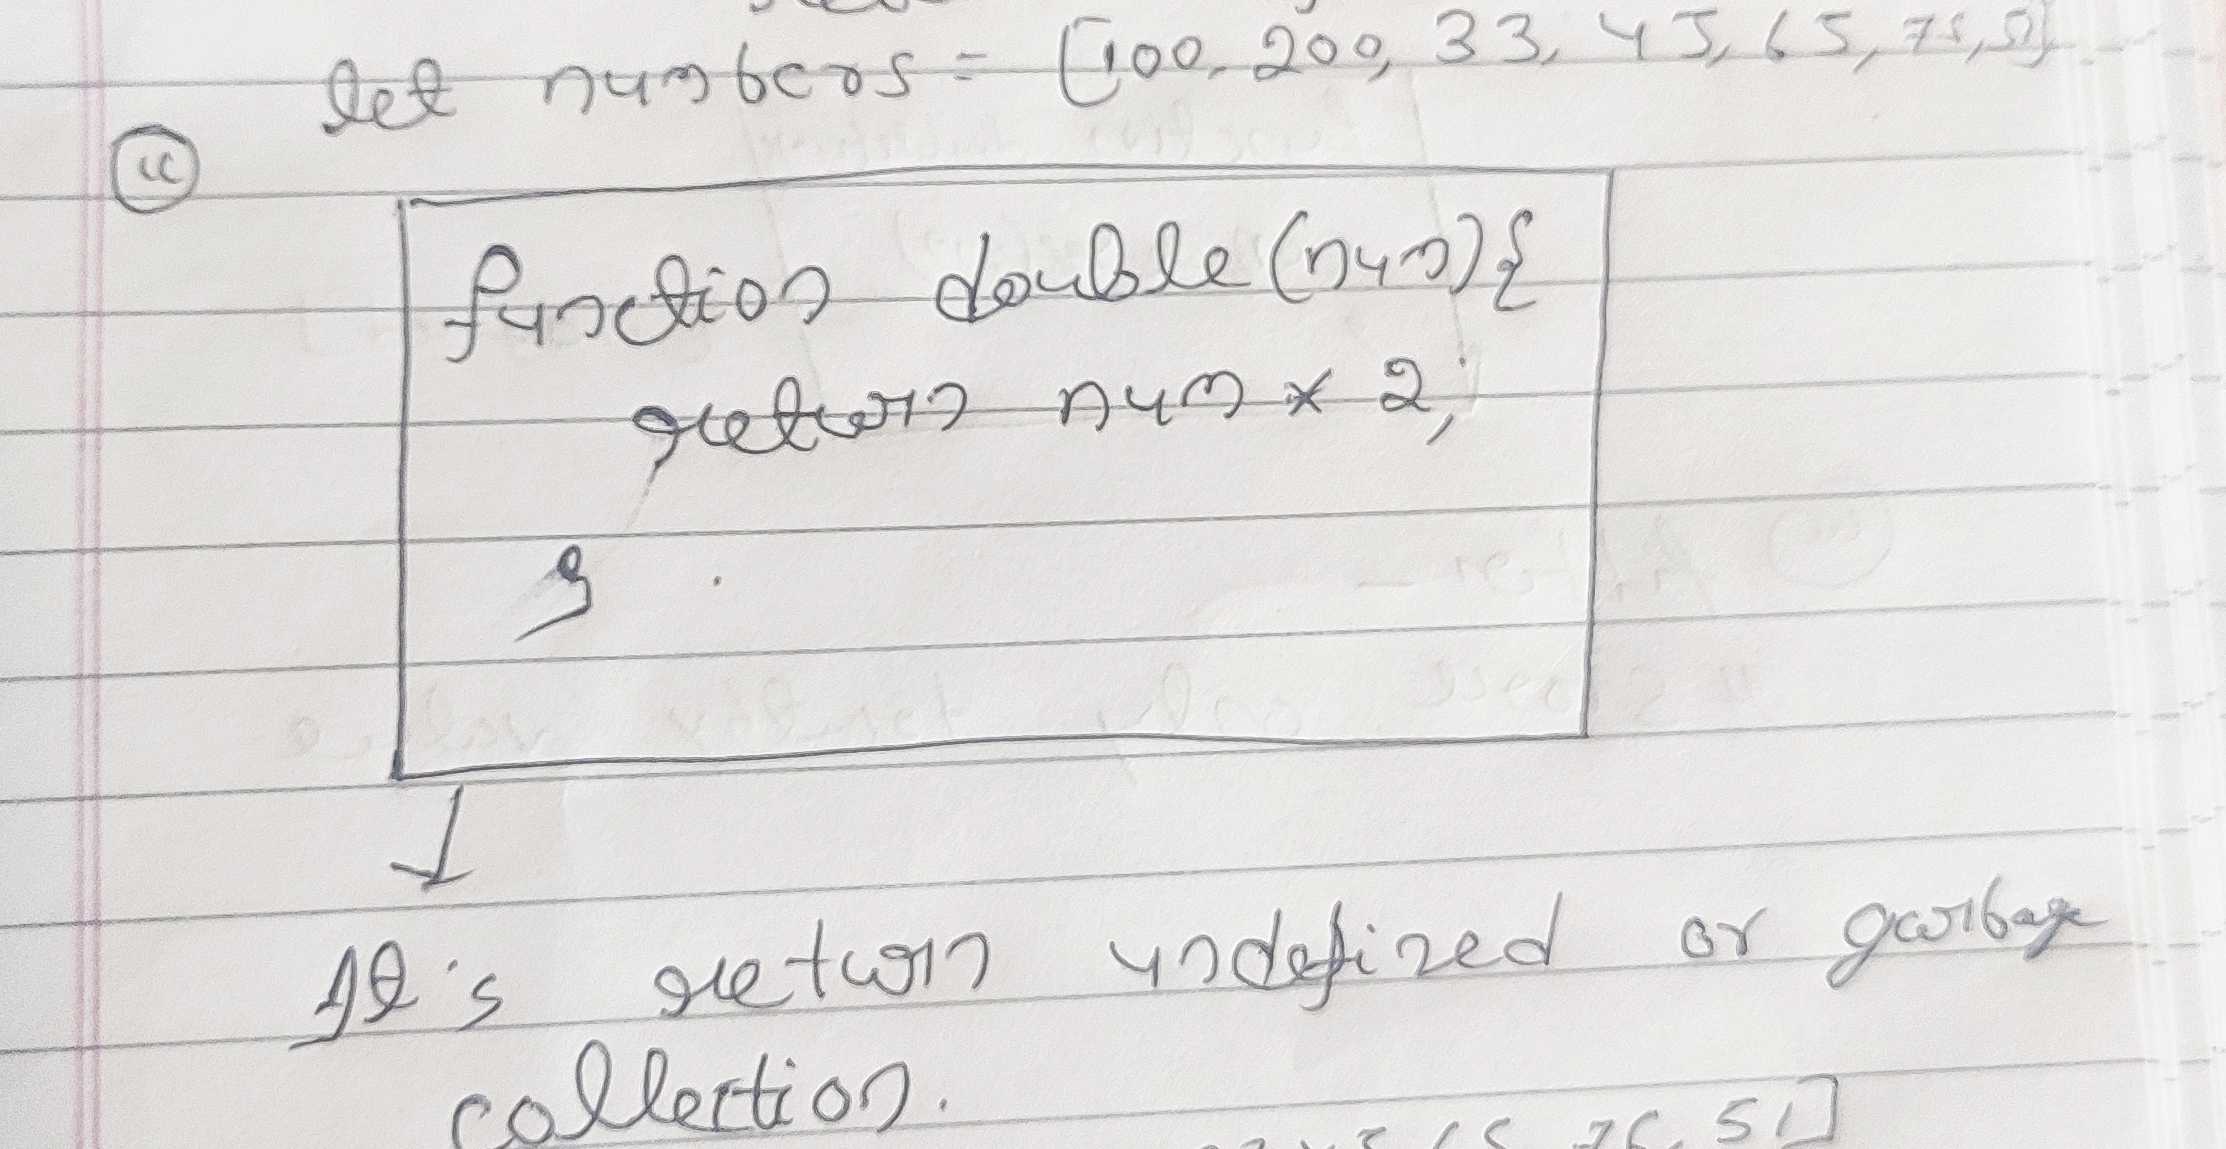 let numbers = [100, 200, 33, 45, 65, 75, 51]
ii
function double(num){
return num * 2;
}
It's return undefined or garbage
collection.
51]